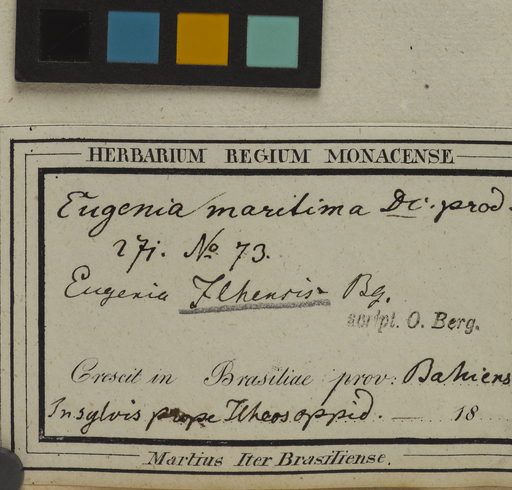 HERBARIUM REGIUM MONACENSE
Eugenia maritima DC. prod.
271. No 73.
Eugenia Ilhensis Bg.
script. O. Berg.
Crescit in Brasiliae prov: Bahiens
In sylvis prope Ilheos oppid. — 18
Martius Iter Brasiliense.